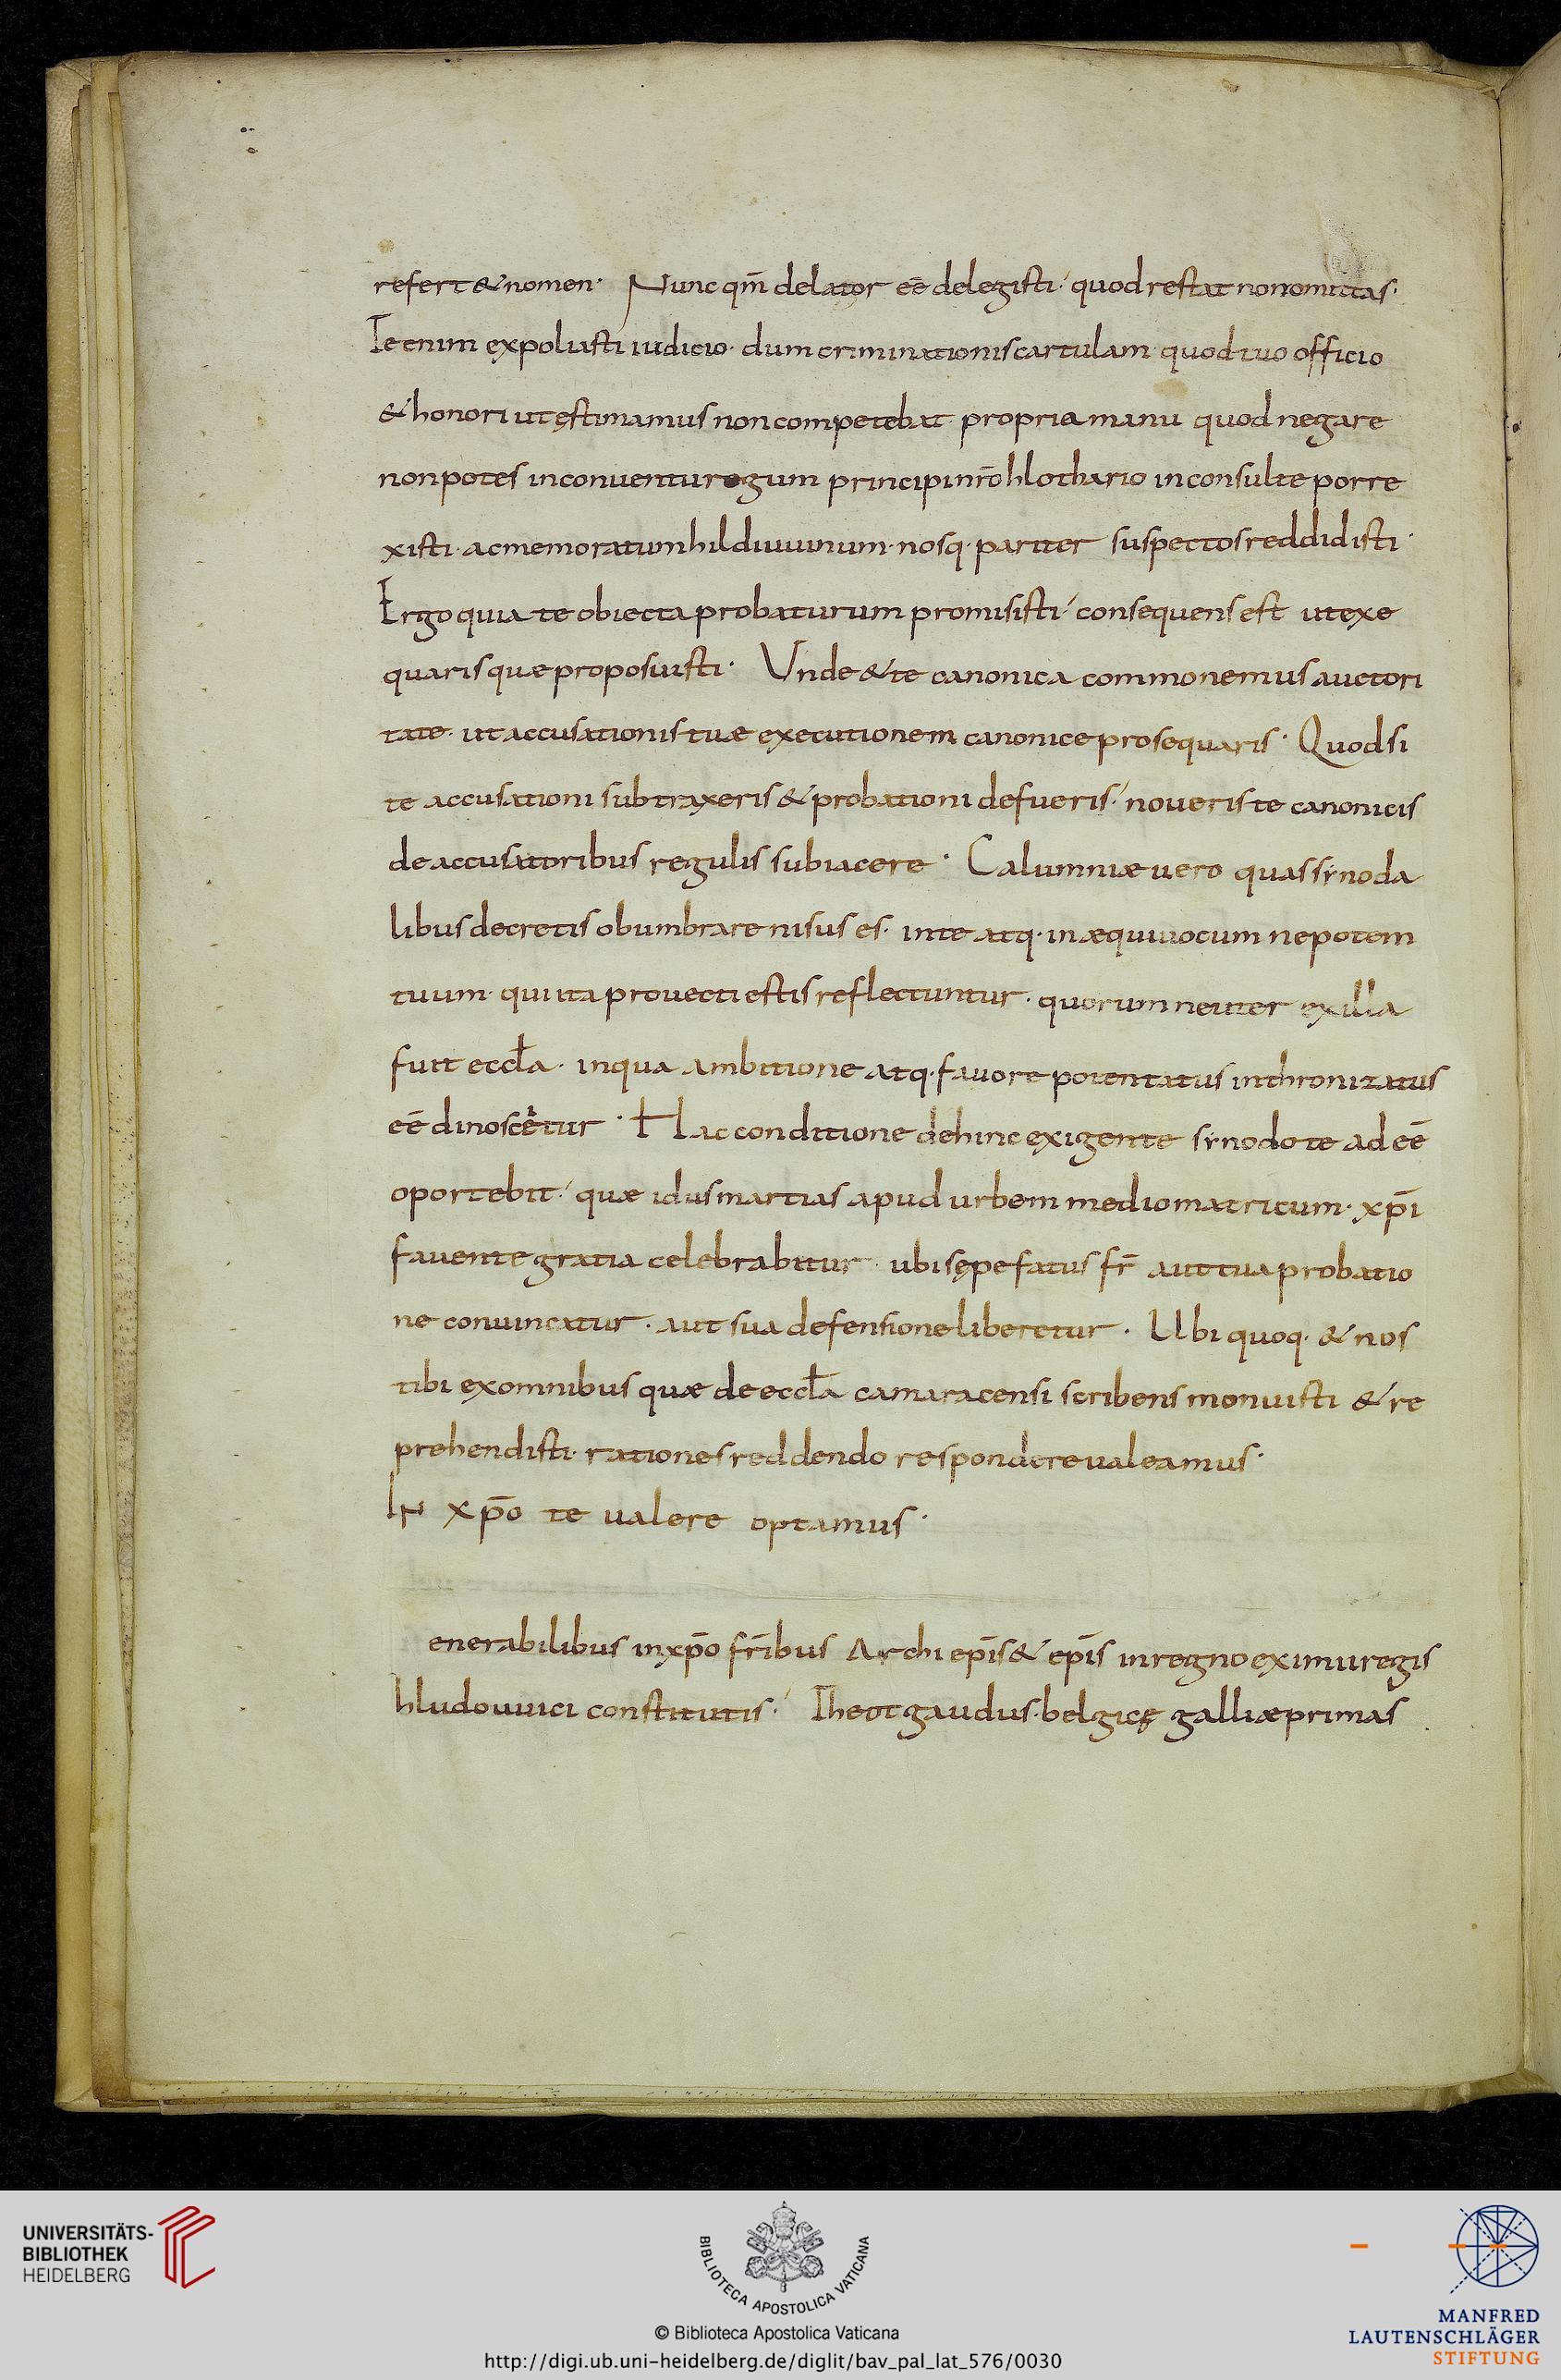 refert & nomen. Nunc qm̄ delator eē delegisti. quod restat non omittas.
Te enim expoliasti iudicio. dum criminationis cartulam quod tuo officio
& honori ut ęstimamus non competebat. propria manu quod negare
non potes in conventu regum principi nr̄o hlothario inconsulte porre
xisti. ac memoratum hilduuinum. nosq. pariter suspectos reddidisti.
Ergo quia te obiecta probaturum promisisti. consequens est ut exe
quaris quæ proposuisti. Unde & te canonica commonemus auctori
tate. ut accusationis tuæ executionem canonice prosequaris. Quod si
te accusationi subtraxeris & probationi defueris. noveris te canonicis
de accusatoribus regulis subiacere. Calumniæ vero quas synoda
libus decretis obumbrare nisus es. in te atq. in æquivocum nepotem
tuum. qui ita provecti estis reflectuntur. quorum neuter ex illa
fuit eccl̄a. in qua ambitione atq. favore potentatus inthronizatus
eē dinoscer̄etur. Hac conditione dehinc exigente synodo te adeē
oportebit. quæ idus martias apud urbem mediomatricum. xp̄i
favente gratia celebrabitur. ubi sępe fatus fr̄ aut tua probatio
ne convincatur. aut sua defensione liberetur. Ubi quoq. & nos
tibi ex omnibus quæ de eccl̄a camaracensi scribens monuisti & re
prehendisti. rationes reddendo respondere valeamus.
IN xp̄o te valere optamus.
enerabilibus in xp̄o fr̄ibus Archi ep̄is & ep̄is in regno eximii regis
hludouuici constitutis. Theotgaudus. belgicę galliæ primas
UNIVERSITÄTS-
BIBLIOTHEK
HEIDELBERG
BIBLIOTECA APOSTOLICA VATICANA
© Biblioteca Apostolica Vaticana
http://digi.ub.uni-heidelberg.de/diglit/bav_pal_lat_576/0030
MANFRED
LAUTENSCHLÄGER
STIFTUNG